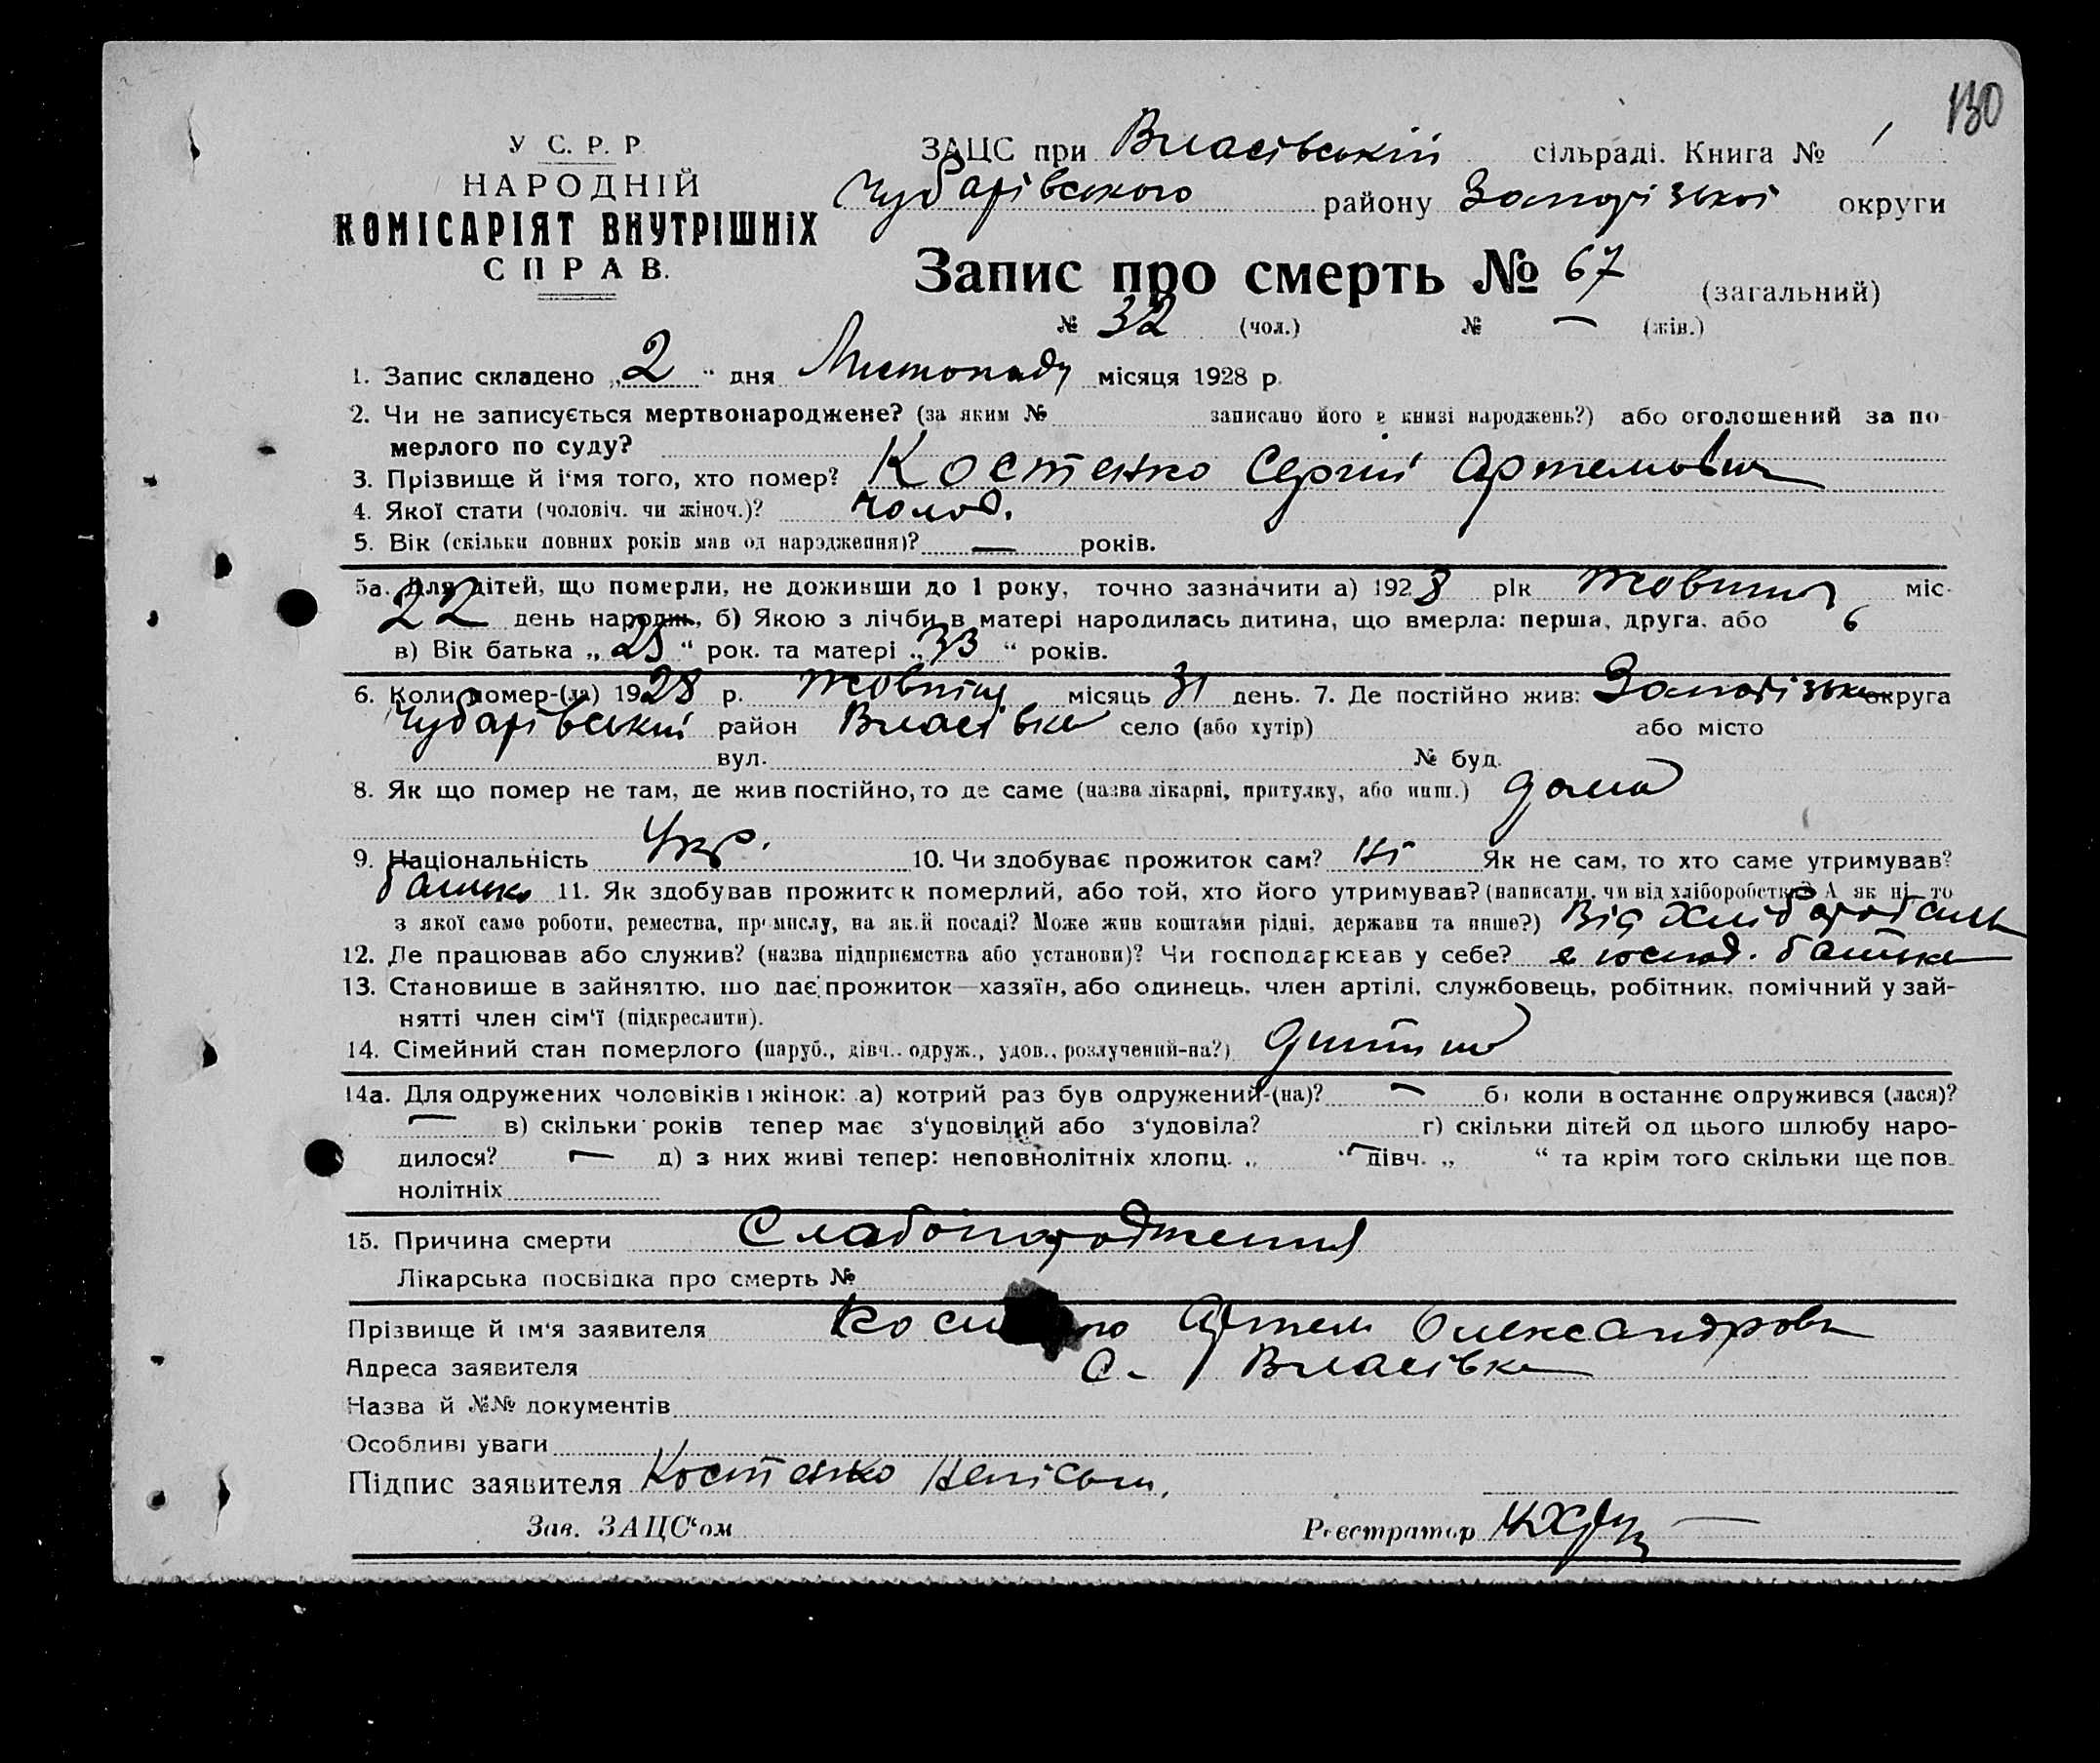 130
У С. Р. Р
НАРОДНІЙ
КОМІСАРІЯТ ВНУТРІШНІХ
СПРАВ.
ЗАЦС при Власівській сільраді. Книга № 1
Чубарівського району Запорізької округи
Запис про смерть № 67 (загальний)
№ 32 (чол.) № — (жін.)
1. Запис складено „2“ дня Листопаду місяця 1928 р.
2. Чи не записується мертвонароджене? (за яким № записано його в книзі народжень?) або оголошений за по-
мерлого по суду?
3. Прізвище й ім'я того, хто помер? Костенко Сергій Артемович
4. Якої стати (чоловіч. чи жіноч.)? чолов.
5. Вік (скільки повних років мав од народження)? — років.
5а. Для дітей, що померли, не доживши до 1 року, точно зазначити а) 1928 рік Жовтня міс.
22 день народж., б) Якою з лічби в матері народилась дитина, що вмерла: перша, друга, або 6
в) Вік батька „28“ рок. та матері „33“ років.
6. Коли помер-(ла) 1928 р. Жовтня місяць 31 день. 7. Де постійно жив: Запорізька округа
Чубарівський район Власівка село (або хутір) або місто
вул. № буд.
8. Як що помер не там, де жив постійно, то де саме (назва лікарні, притулку, або инш.) дома
9. Національність Укр. 10. Чи здобуває прожиток сам? ні Як не сам, то хто саме утримував?
батько 11. Як здобував прожиток померлий, або той, хто його утримував? (написати, чи від хліборобства? А як ні, то
з якої саме роботи, ремества, промислу, на як.й посаді? Може жив коштами рідні, держави та инше?) Від хліборобства
12. Де працював або служив? (назва підприємства або установи)? Чи господарював у себе? в господ. батька
13. Становище в зайняттю, що дає прожиток—хазяїн, або одинець, член артілі, службовець, робітник, помічний у зай-
нятті член сім'ї (підкреслити).
14. Сімейний стан померлого (паруб., дівч., одруж., удов., розлучений-на?) дитина
14а. Для одружених чоловіків і жінок: а) котрий раз був одружений-(на)? — б) коли в останнє одружився (лася)?
— в) скільки років тепер має з'удовілий або з'удовіла? г) скільки дітей од цього шлюбу наро-
дилося? — д) з них живі тепер: неповнолітніх хлопц. „ “ дівч. „ “ та крім того скільки ще пов-
нолітніх
15. Причина смерти Слабонародження
Лікарська посвідка про смерть №
Прізвище й ім'я заявителя Костенко Артем Олександров
Адреса заявителя с. Власівка
Назва й №№ документів
Особливі уваги
Підпис заявителя Костенко
Зав. ЗАЦС'ом Реєстратор